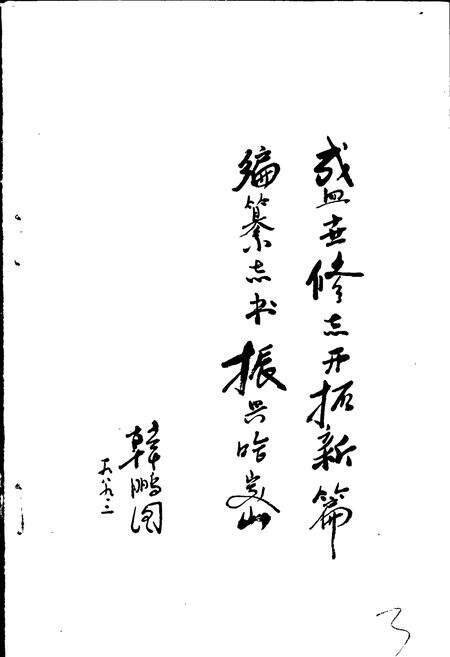 盛世修志开拓新篇
编纂志书振兴哈岌山
韩鹏图
一九八九·三
3